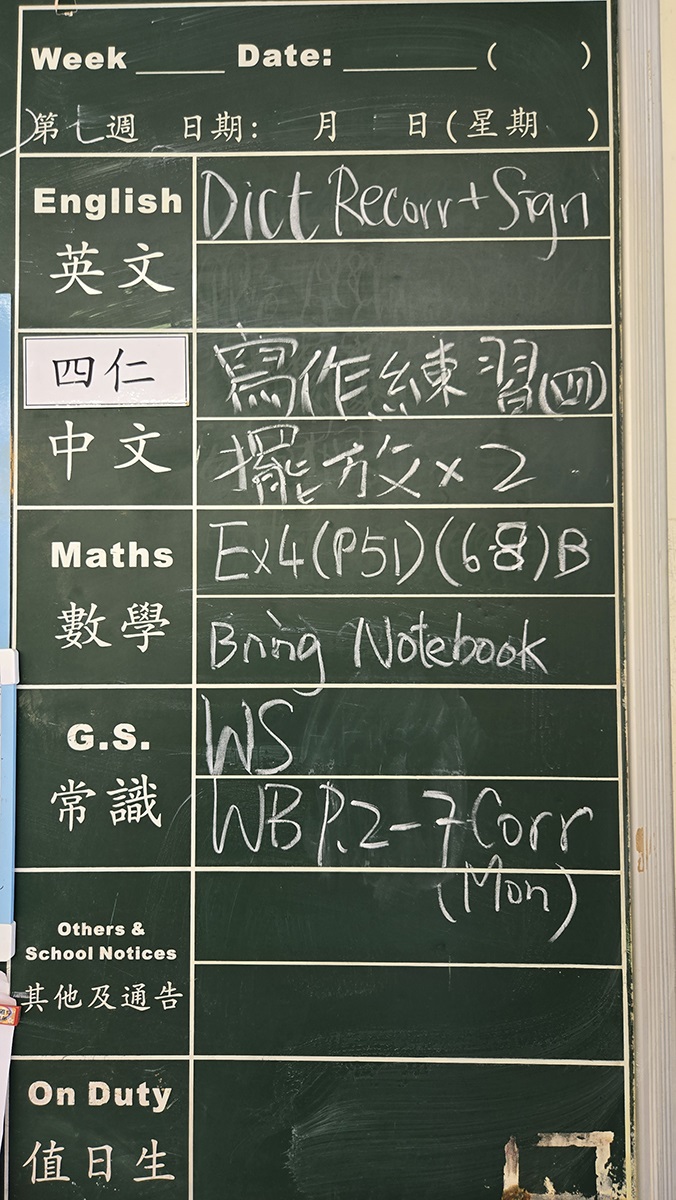 Week ______ Date: ________ ( )
第七週 日期: 月 日(星期 )
English Dict Recorr + Sign
英文
四仁 寫作練習(四)
中文 擺放 x 2
Maths Ex4 (P51) (6-8) B
數學 Bring Notebook
G.S. WS
常識 WB P.2-7 Corr
(Mon)
Others &
School Notices
其他及通告
On Duty
值日生